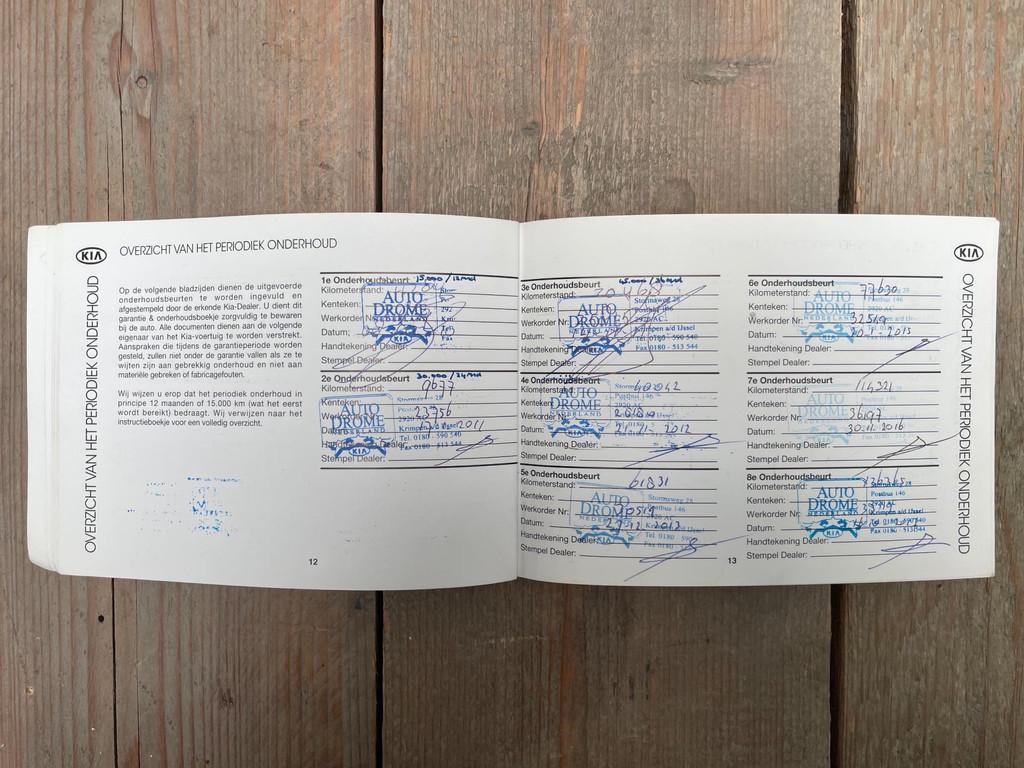 KIA
OVERZICHT VAN HET PERIODIEK ONDERHOUD
OVERZICHT VAN HET PERIODIEK ONDERHOUD
Op de volgende bladzijden dienen de uitgevoerde
onderhoudsbeurten te worden ingevuld en
afgestempeld door de erkende Kia-Dealer. U dient dit
garantie & onderhoudsboekje zorgvuldig te bewaren
bij de auto. Alle documenten dienen aan de volgende
eigenaar van het Kia-voertuig te worden verstrekt.
Aanspraken die tijdens de garantieperiode worden
gesteld, zullen niet onder de garantie vallen als ze te
wijten zijn aan gebrekkig onderhoud en niet aan
materiële gebreken of fabricagefouten.
Wij wijzen u erop dat het periodiek onderhoud in
principe 12 maanden of 15.000 km (wat het eerst
wordt bereikt) bedraagt. Wij verwijzen naar het
instructieboekje voor een volledig overzicht.
1e Onderhoudsbeurt 15.000 / 12 mnd
Kilometerstand:
Kenteken:
Werkorder Nr:
Datum:
Handtekening Dealer:
Stempel Dealer:
AUTO
DROME
NEDERLAND
KIA
2e Onderhoudsbeurt 30.000 / 24 mnd
Kilometerstand:
Kenteken:
23756
2011
Stempel Dealer:
AUTO
DROME
NEDERLAND
KIA
Tel. 0180 - 590 540
Fax 0180 - 513 544
12
3e Onderhoudsbeurt 45.000 / 36 mnd
Kilometerstand:
Kenteken:
Werkorder Nr:
Datum:
Handtekening Dealer:
Stempel Dealer:
AUTO
DROME
NEDERLAND
KIA
Stormsweg 28
Postbus 146
Krimpen a/d IJssel
Tel. 0180 - 590 540
Fax 0180 - 513 544
4e Onderhoudsbeurt
Kilometerstand: 40042
Kenteken:
Werkorder Nr:
Datum: 21-11-2012
Handtekening Dealer:
Stempel Dealer:
AUTO
DROME
NEDERLAND
KIA
5e Onderhoudsbeurt
Kilometerstand: 61831
Kenteken:
Werkorder Nr: 30519
Datum:
Handtekening Dealer:
Stempel Dealer:
AUTO
DROME
NEDERLAND
KIA
Stormsweg 28
Postbus 146
6e Onderhoudsbeurt
Kilometerstand: 77630
Kenteken:
Werkorder Nr: 32519
Datum:
Handtekening Dealer:
Stempel Dealer:
AUTO
DROME
Postbus 146
7e Onderhoudsbeurt
Kilometerstand: 114321
Kenteken:
Werkorder Nr: 36197
Datum: 30.11.2016
Handtekening Dealer:
Stempel Dealer:
8e Onderhoudsbeurt
Kilometerstand:
Kenteken:
Werkorder Nr:
Datum:
Handtekening Dealer:
Stempel Dealer:
AUTO
DROME
NEDERLAND
KIA
Postbus 146
13
KIA
OVERZICHT VAN HET PERIODIEK ONDERHOUD